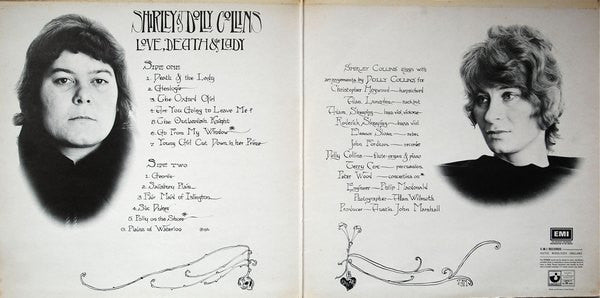 SHIRLEY & DOLLY COLLINS
LOVE, DEATH & LADY
SIDE ONE
1. Death & the Lady
2. Glenlogie
3. The Oxford Girl
4. Are You Going to Leave Me?
5. The Outlandish Knight
6. Go From My Window*
7. Young Girl Cut Down in her Prime
SIDE TWO
1. Geordie
2. Salisbury Plain
3. Fair Maid of Islington
4. Six Dukes
5. Polly on the Shore*
6. Plains of Waterloo
SHIRLEY COLLINS sings with
arrangements by DOLLY COLLINS for
Christopher Hogwood — harpsichord
Adam Skeaping — bass viol, violone
Roderick Skeaping — bass viol
Eleanor Sloan — rebec
John Fordham — recorder
Dolly Collins — flute-organ & piano
Terry Cox — percussion
Peter Wood — concertina on*
Engineer — Philip Macdonald
Photographer — Alan Willmoth
Producer — Austin John Marshall
EMI
E.M.I. RECORDS
HAYES MIDDLESEX ENGLAND